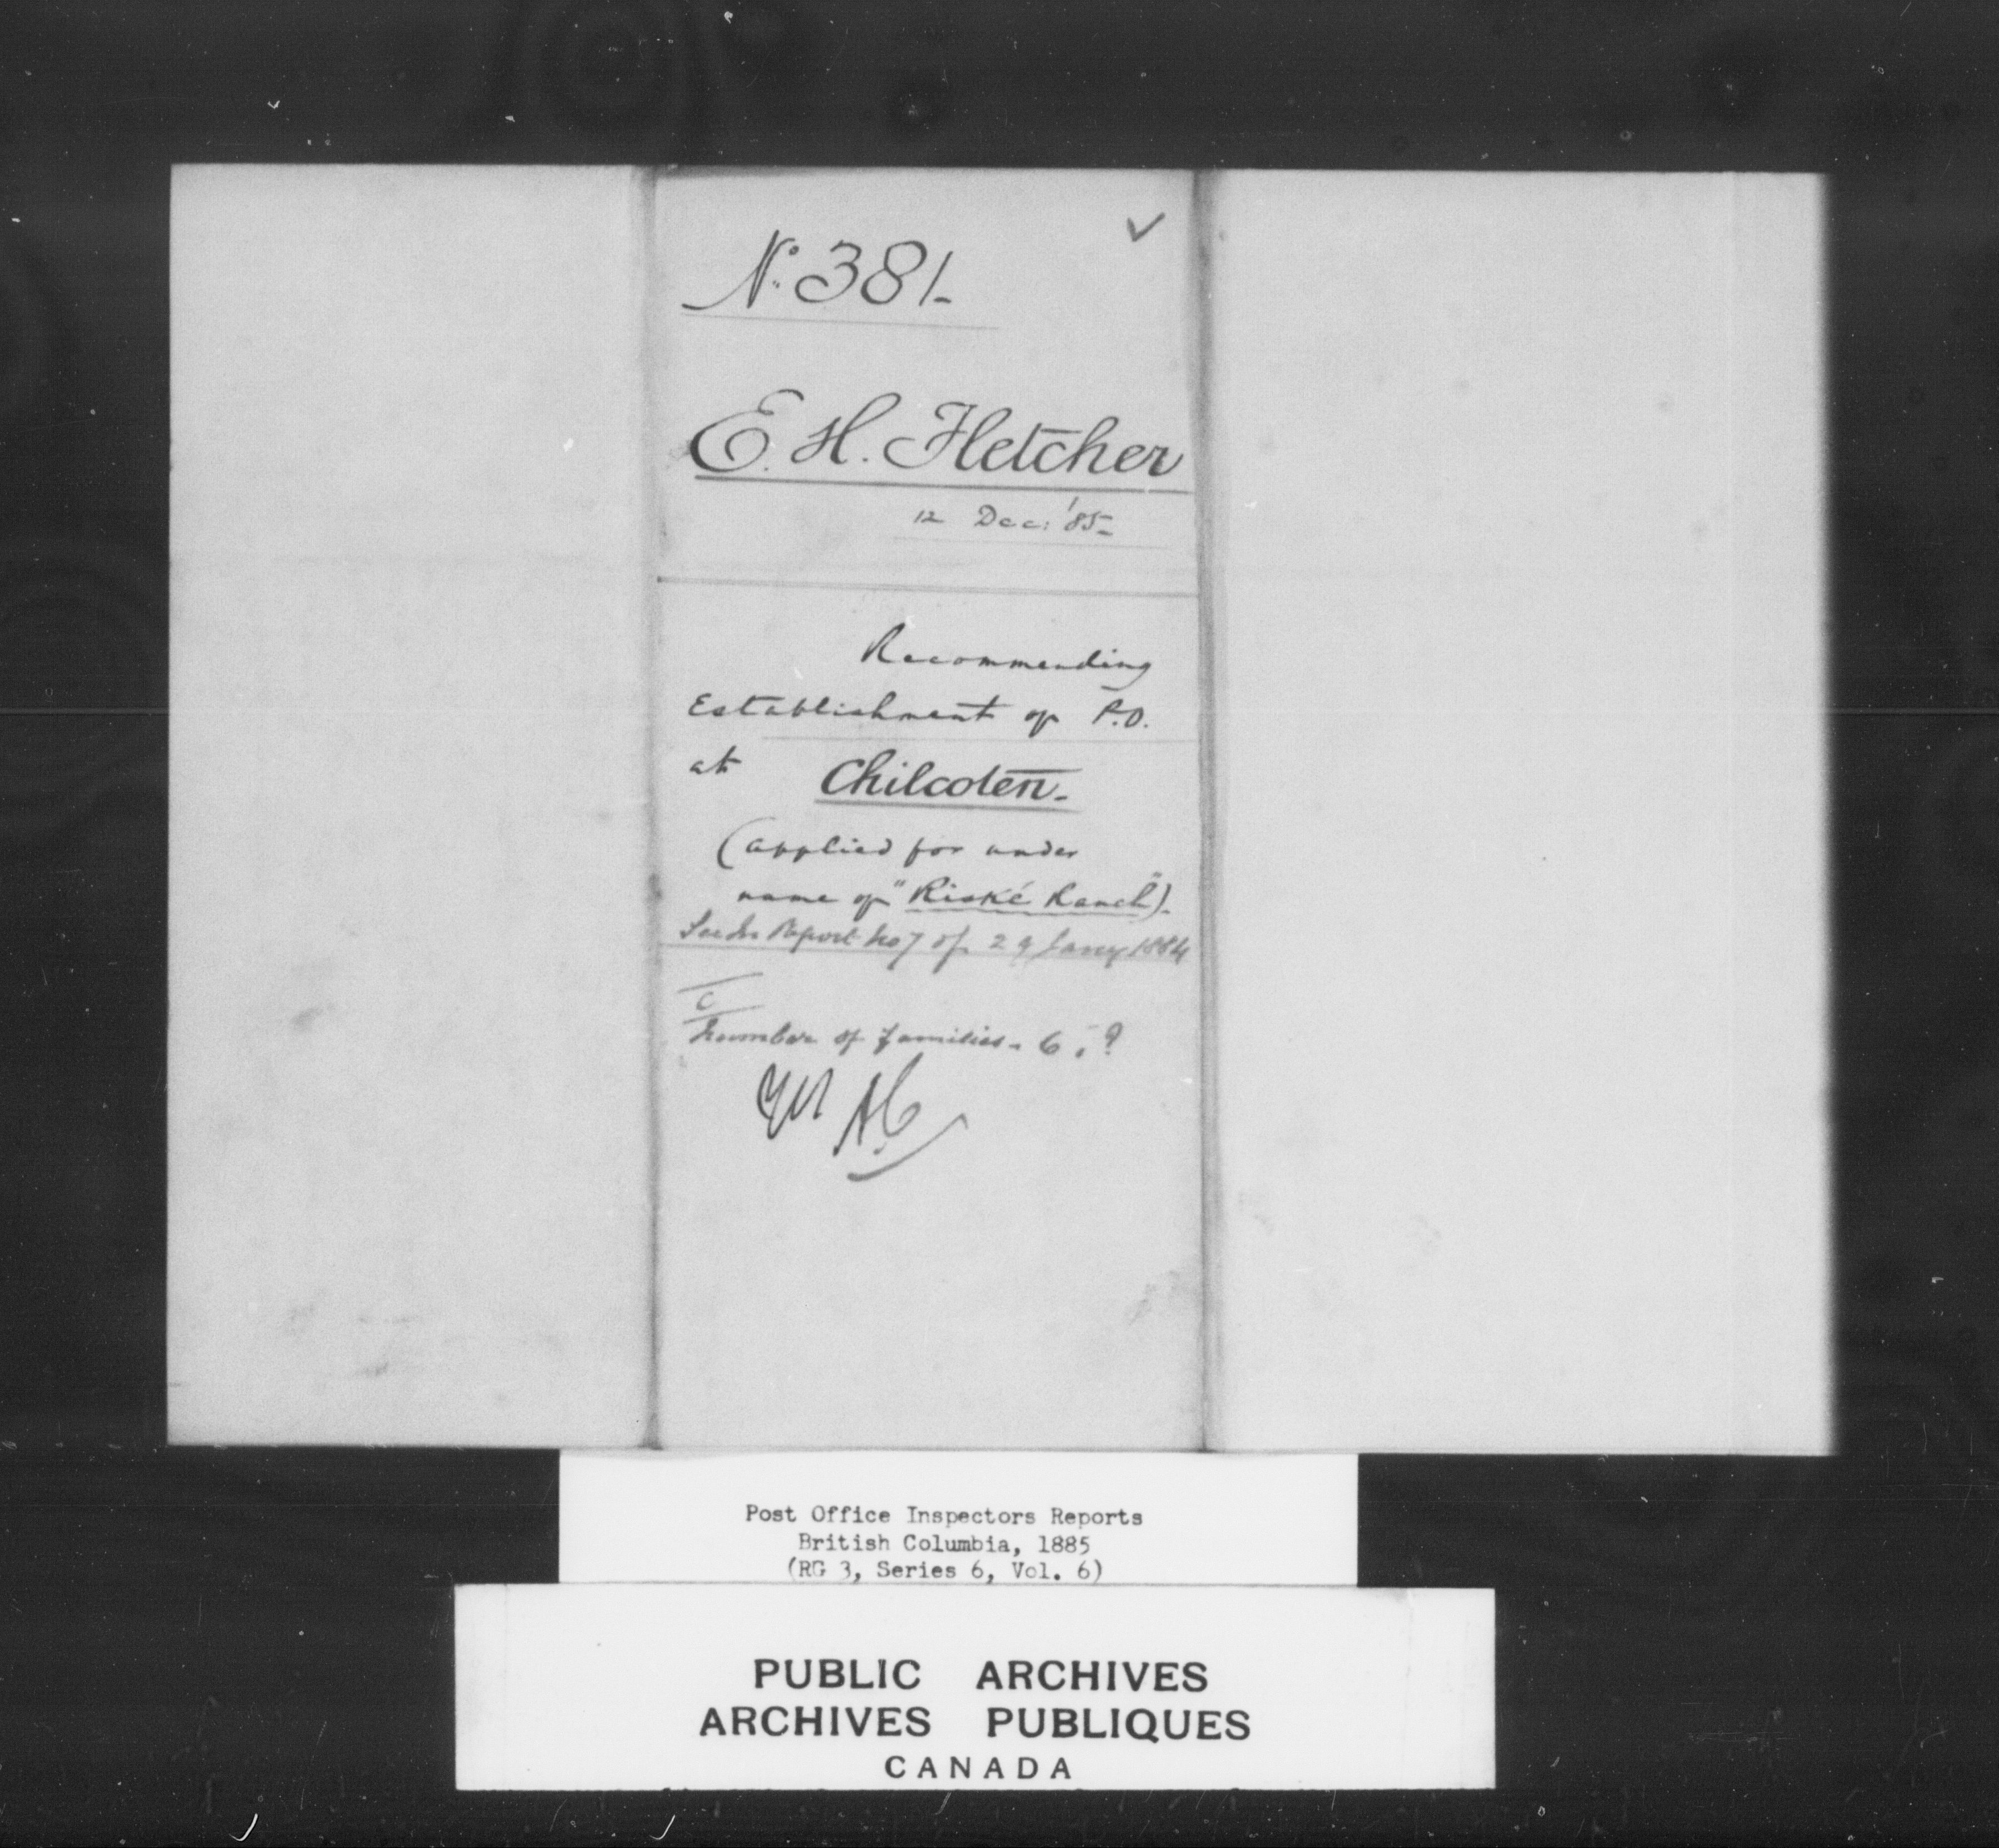 ✓
No. 381.
E. H. Fletcher
12 Dec: '85
Recommending
Establishment of P.O.
at Chilcoten.
(applied for under
name of "Riské Ranch").
Report No 7 of 29 Jany 1884
C
Number of families - 6. ?
Post Office Inspectors Reports
British Columbia, 1885
(RG 3, Series 6, Vol. 6)
PUBLIC ARCHIVES
ARCHIVES PUBLIQUES
CANADA